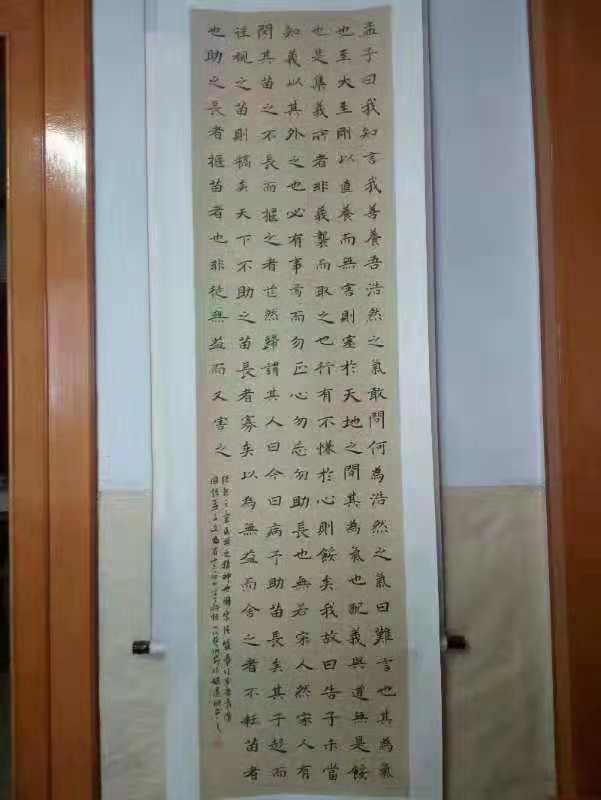 孟子曰我知言我善養吾浩然之氣敢問何為浩然之氣曰難言也其為氣
也至大至剛以直養而無害則塞於天地之間其為氣也配義與道無是餒
也是集義所者非義襲而取之也行有不慊於心則餒矣我故曰告子未當
知義以其外之也必有事焉而勿正心勿忘勿助長也無若宋人然宋人有
閔其苗之不長而揠之者芒然歸謂其人曰今日病予助苗長矣其子趨而
往視之苗則稿矣天下不助之苗長者寡矣以為無益而舍之者不耘苗者
也助之長者揠苗者也非徒無益而又害之